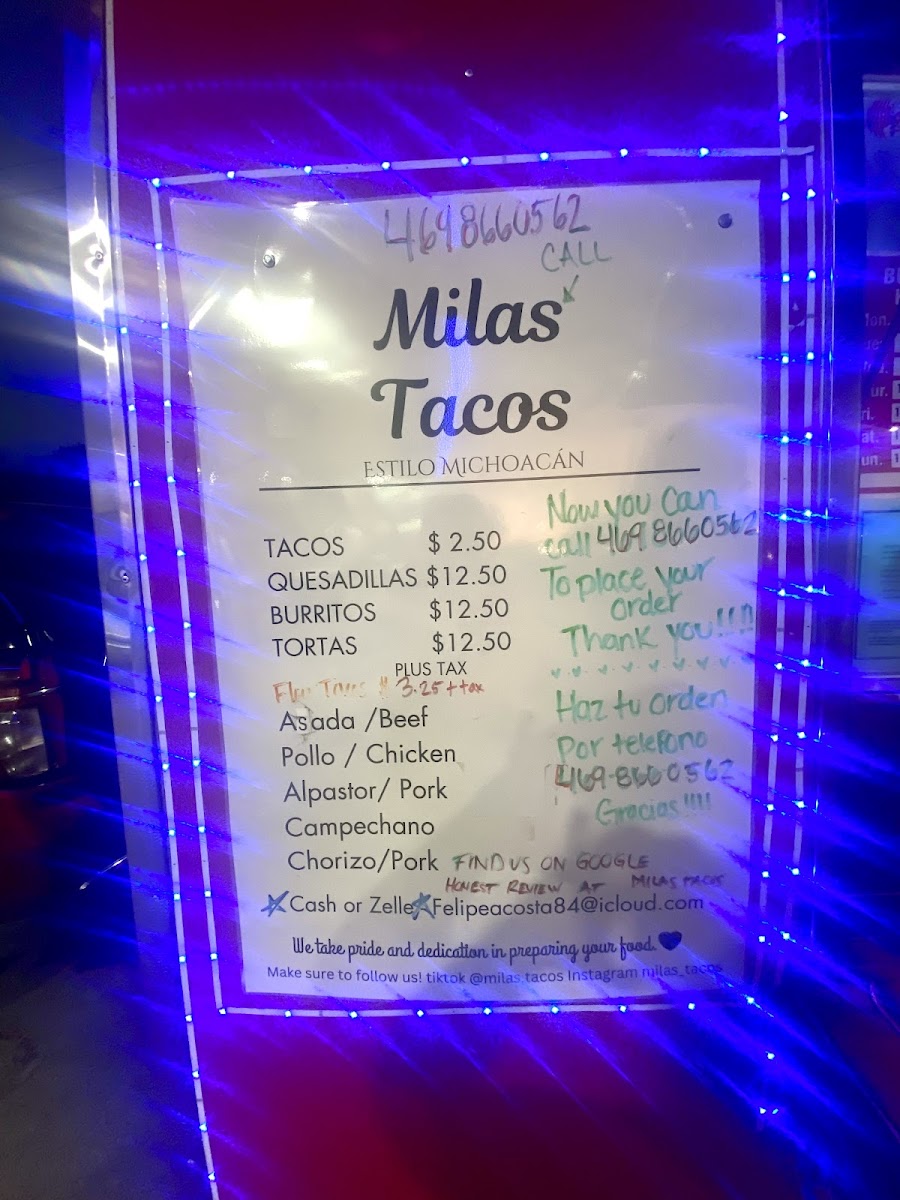 4698660562
CALL
Milas
Tacos
ESTILO MICHOACÁN
TACOS $ 2.50
QUESADILLAS $12.50
BURRITOS $12.50
TORTAS $12.50
PLUS TAX
Tacos $ 3.25 + tax
Asada /Beef
Pollo / Chicken
Alpastor/ Pork
Campechano
Chorizo/Pork
Now you can
call 469 8660562
To place your
order
Thank you!!!!
Haz tu orden
Por telefono
469-8660562
Gracias!!!!
FIND US ON GOOGLE
HONEST REVIEW AT MILAS TACOS
Cash or Zelle Felipeacosta84@icloud.com
We take pride and dedication in preparing your food.
Make sure to follow us! tiktok @milas.tacos Instagram milas_tacos